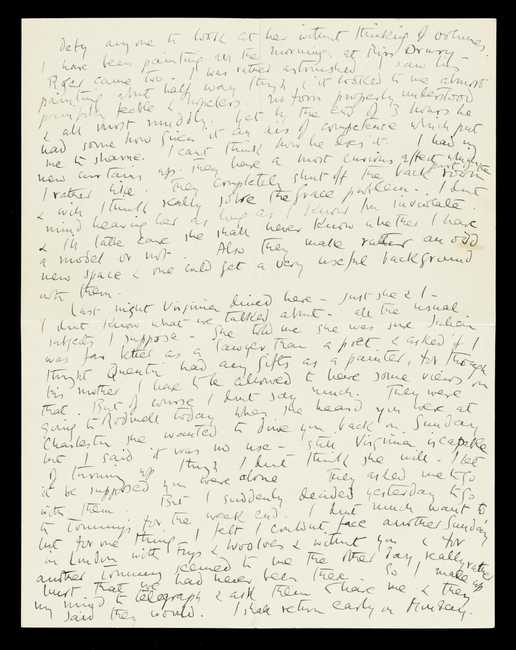 Defy anyone to look at her without thinking of volumes.
I have been painting in the mornings at Miss Drury –
Roger came too. I was rather astonished. I saw his
painting about half way through & it looked to me almost
feeble & hopeless no form properly understood
& all most muddly. Yet by the end of 3 hours he
had some how given it an air of competence which put
me to shame. I can't think how he does it. I had my
new curtains up. They have a most curious effect which
I rather like. They completely shut off the back room
& will I think really solve the Grace problem. I don't
mind hearing her as long as I know I'm inviolate
& in later case she shall never know whether I have
a model or not. Also they make rather an odd
new space & one could get a very useful background
with them.
Last night Virginia dined here – just she & I –
I don't know what we talked about – all the usual
subjects I suppose – She told me she was sure Julian
was far better as a lawyer than a poet & asked if I
thought Quentin had any gifts as a painter, for though
his mother I had to be allowed to have some views on
that. But of course I didn't say much. They were
going to Rodmell today & when she heard you were at
Charleston she wanted to drive you back on Sunday
but I said it was no use – still Virginia is capable
of turning up though I don't think she will. I let
it be supposed you were alone. They asked me to go
with them. But I suddenly decided yesterday to go
to Lominys for the week end. I don't much want to
but for one thing I felt I couldn't face another Sunday
in London with Frys & Woolves & without you & for
another Lominys seemed to me the other day really rather
hurt that we had never been there. So I made up
my mind to telegraph & ask them to have me & they
said they would. I shall return early on Monday.